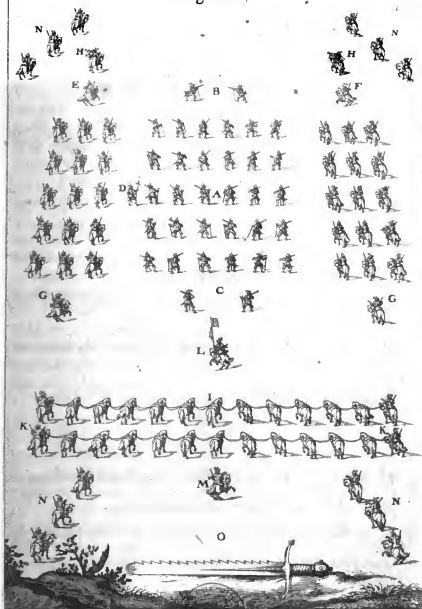 N N
H H
E B F
D A
G C G
L
I
K K
M
N N
O